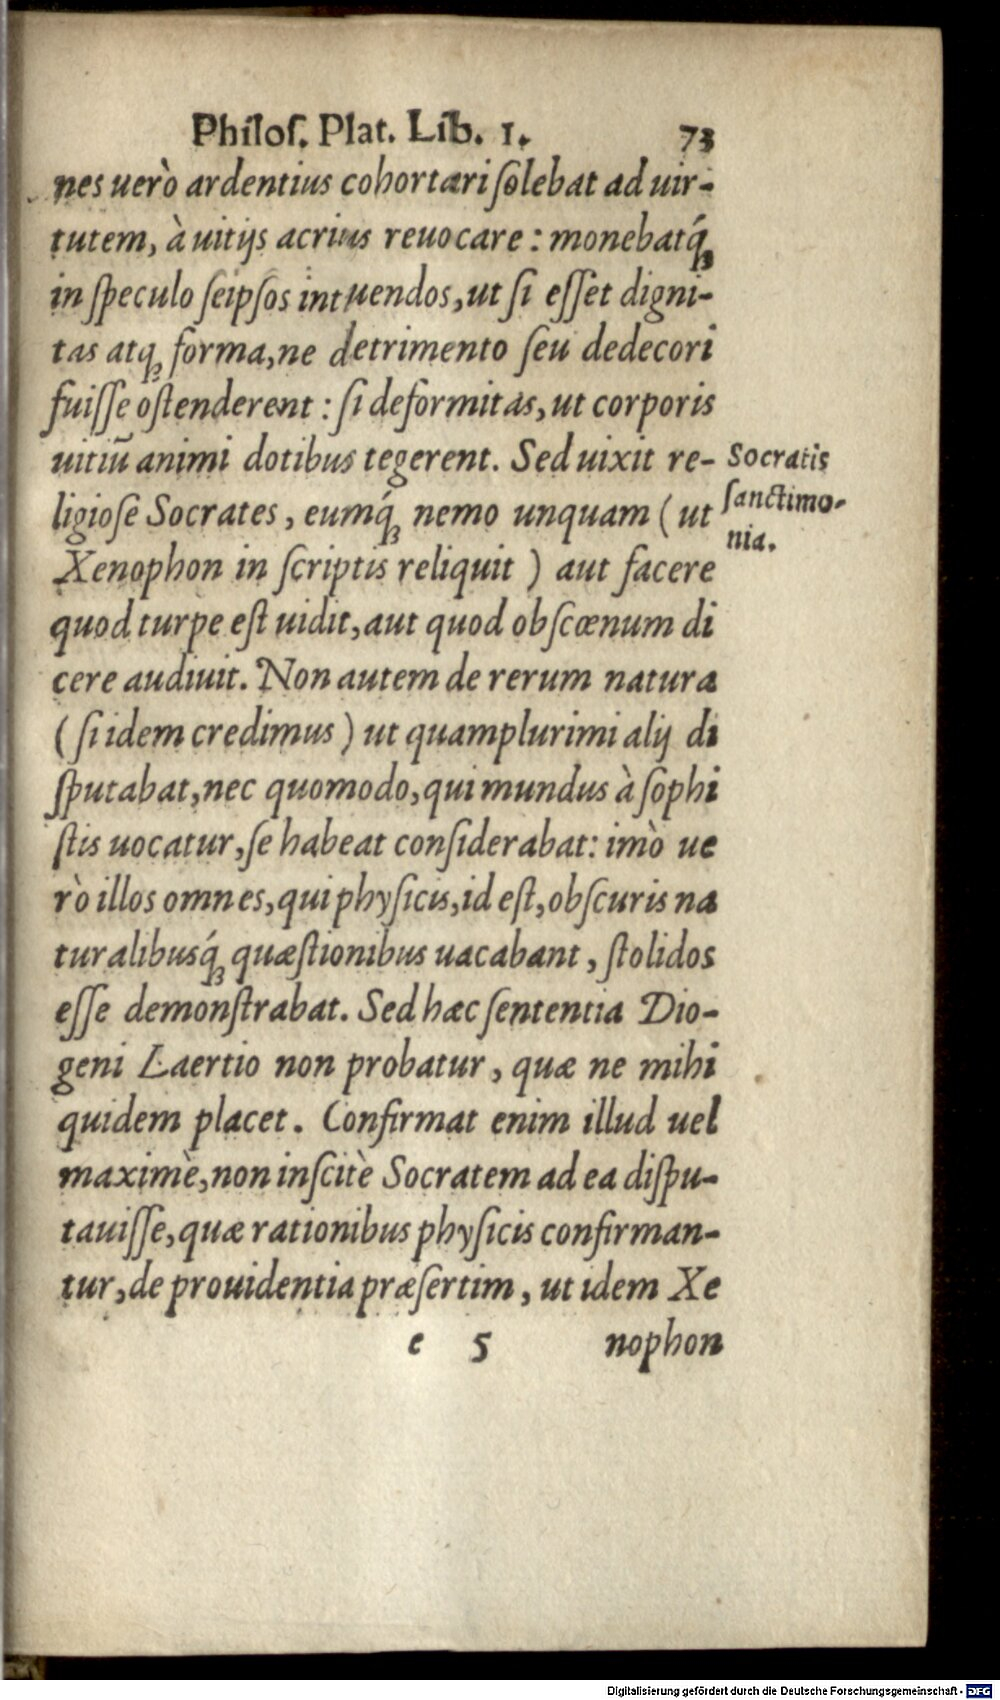 Philoſ. Plat. Lib. 1. 73
nes uerò ardentius cohortari ſolebat ad uir-
tutem, à uitijs acrius reuocare: monebatq́ꝫ
in ſpeculo ſeipſos intuendos, ut ſi eſſet digni-
tas atqꝫ forma, ne detrimento ſeu dedecori
fuiſſe oſtenderent: ſi deformitas, ut corporis
uitiū animi dotibus tegerent. Sed uixit re-
ligioſe Socrates, eumq́ꝫ nemo unquam (ut
Xenophon in ſcriptis reliquit) aut facere
quod turpe eſt uidit, aut quod obſcœnum di
cere audiuit. Non autem de rerum natura
(ſi idem credimus) ut quamplurimi alij di
ſputabat, nec quomodo, qui mundus à ſophi
ſtis uocatur, ſe habeat conſiderabat: imò ue
rò illos omnes, qui phyſicis, id eſt, obſcuris na
turalibusq́ꝫ quæſtionibus uacabant, ſtolidos
eſſe demonſtrabat. Sed hæc ſententia Dio-
geni Laertio non probatur, quæ ne mihi
quidem placet. Confirmat enim illud uel
maximè, non inſcitè Socratem ad ea diſpu-
tauiſſe, quæ rationibus phyſicis confirman-
tur, de prouidentia præſertim, ut idem Xe
e 5 nophon
Socratis
ſanctimo-
nia.
Digitalisierung gefördert durch die Deutsche Forschungsgemeinschaft - DFG